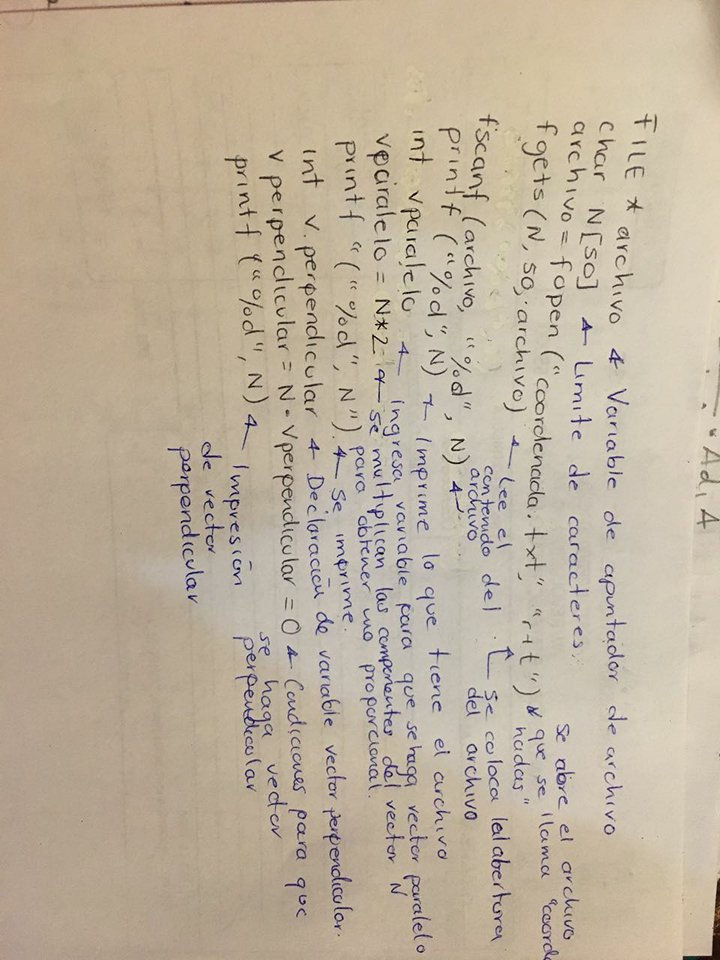 Ad, A
FILE * archivo ← Variable de apuntador de archivo
char N[50] ← Limite de caracteres.
archivo = fopen ("coordenada.txt", "r+t") ← que se llama "coorde
se abre el archivo
nadas"
fgets (N, 50, archivo) ← Lee el
contenido del
archivo
↑ se coloca la abertura
del archivo
fscanf (archivo, "%d", N) ←
printf ("%d", N) ← Imprime lo que tiene el archivo
int vparalelo ← Ingresa variable para que se haga vector paralelo
vparalelo = N*2 ← se multiplican las componentes del vector N
para obtener uno proporcional.
printf "("%d", N") ← se imprime.
int v.perpendicular ← Declaración de variable vector perpendicular.
v perpendicular = N · vperpendicular = 0 ← Condiciones para que
se haga vector
perpendicular
printf ("%d", N) ← Impresión
de vector
perpendicular